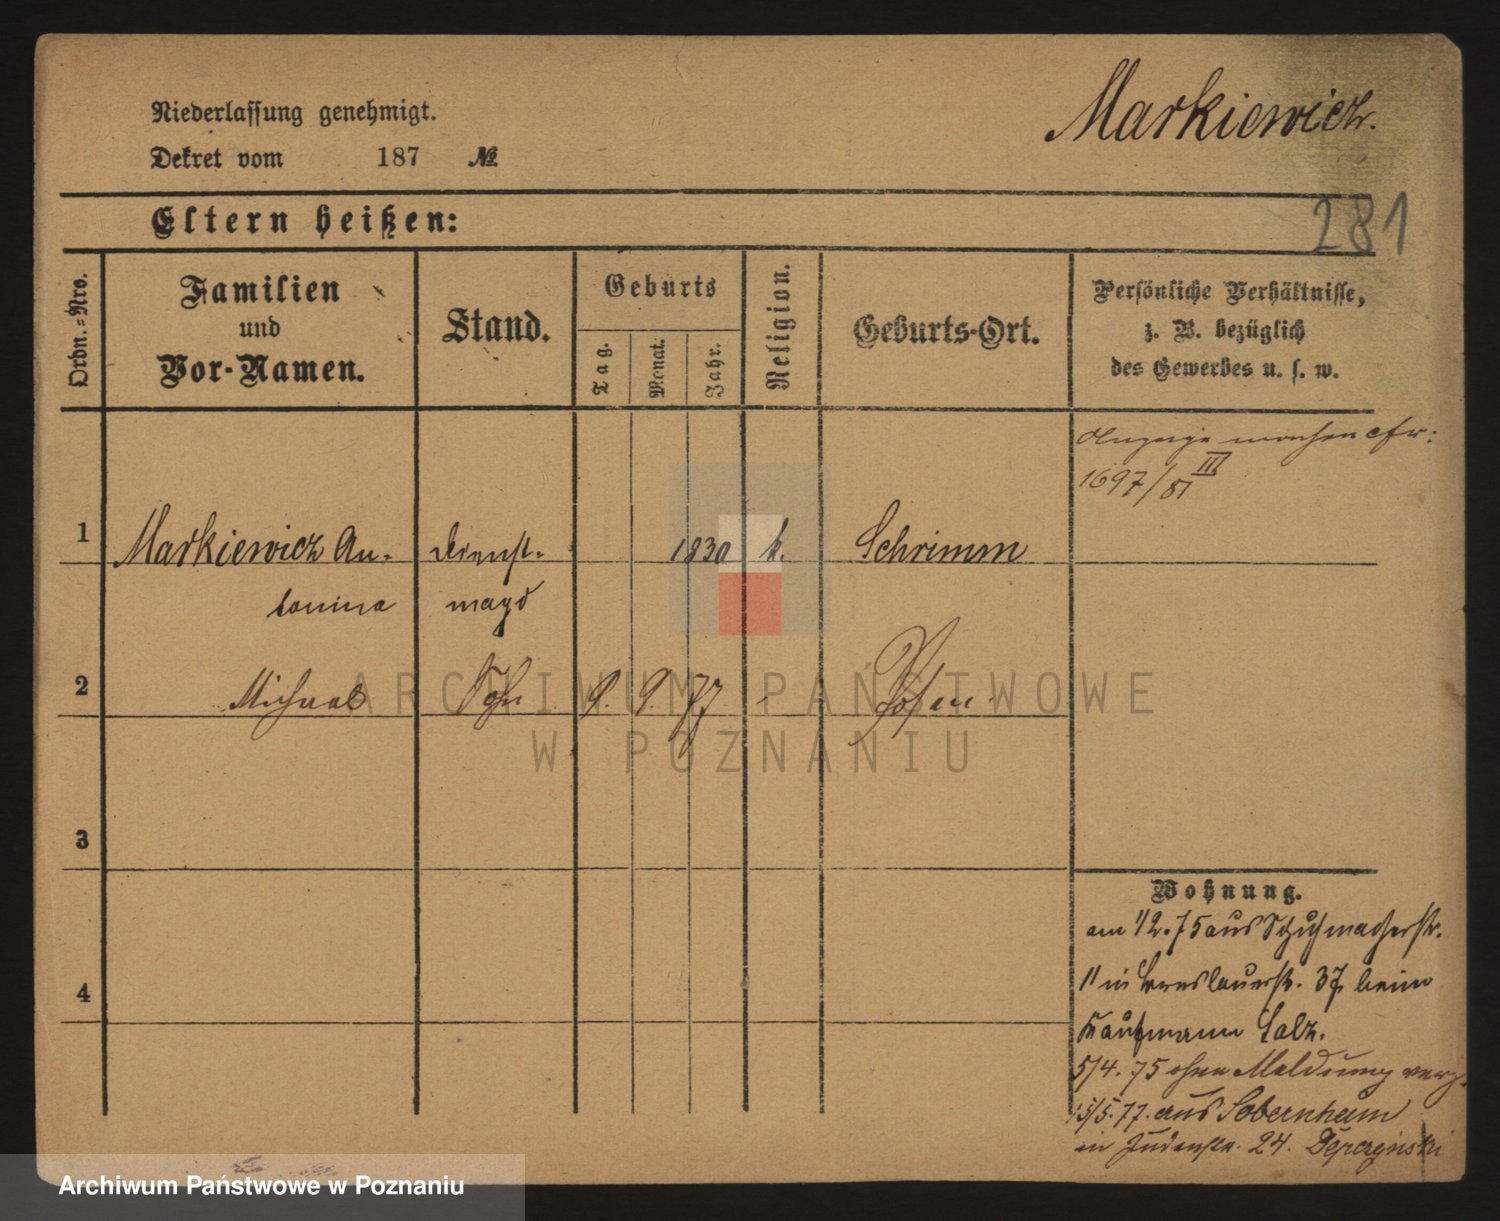 Markiewicz.
Niederlassung genehmigt.
Dekret vom 187 №
Eltern heißen:
281
Ordn.=Nro.
Familien
und
Vor-Namen.
Stand.
Geburts
Tag.
Monat.
Jahr.
Religion.
Geburts-Ort.
Persönliche Verhältnisse,
z. B. bezüglich
des Gewerbes u. s. w.
Anzeige machen cfr:
1697/81 III
1 Markiewicz An- Dienst- 1830 k. Schrimm
tonina magd
2 Michael Sohn 9. 9. 77 Posen
3
4
Wohnung.
am 1/2.75 aus Schuhmacherstr.
11 in Breslauerstr. 37 beim
Kaufmann Salz.
5/4. 75 ohne Meldung verz.
15/5.77. aus Sobernheim
in Judenstr. 24.
ARCHIWUM PAŃSTWOWE
W POZNANIU
Archiwum Państwowe w Poznaniu